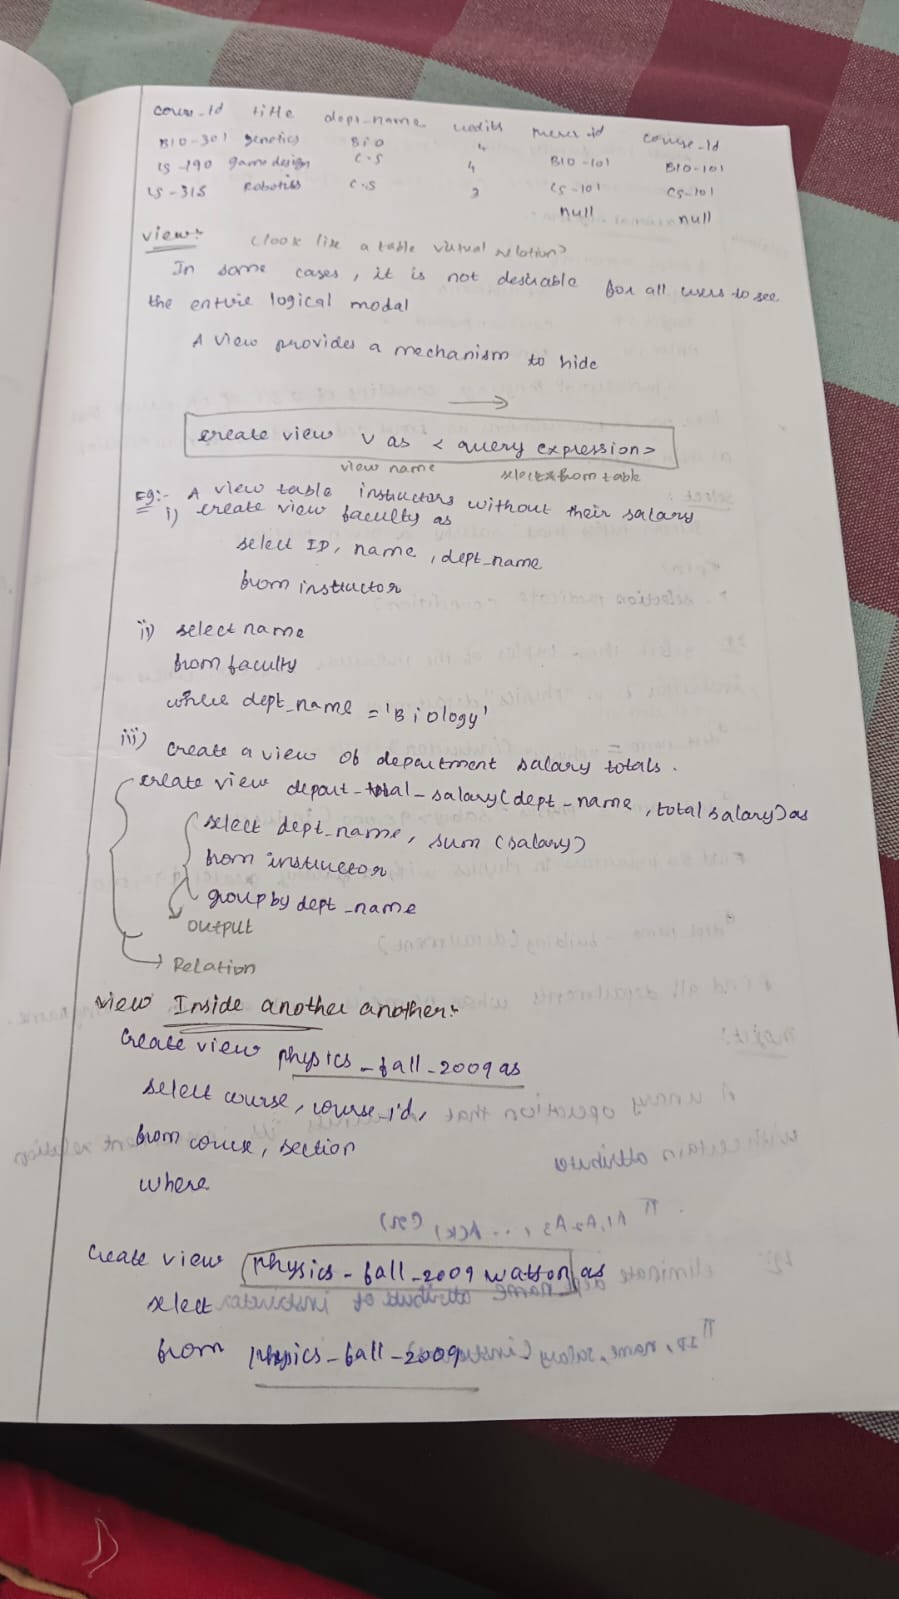 course-Id title dept-name credits prereq-id course-Id
BIO-301 genetics BIO 4 BIO-101 BIO-101
CS-190 game design C.S 4 CS-101 CS-101
CS-315 Robotics C.S 3 null null
view:- (look like a table virtual relation)
In some cases, it is not desirable for all users to see
the entire logical modal
A view provides a mechanism to hide
create view v as < query expression>
view name select * from table
Eg:- A view table instructors without their salary
i) create view faculty as
select ID, name, dept_name
from instructor
ii) select name
from faculty
where dept_name = 'Biology'
iii) create a view of department salary totals.
create view depart-total-salary(dept-name, total salary) as
select dept_name, sum (salary)
from instructor
group by dept_name
output
Relation
view Inside another another:-
Create view physics_fall_2009 as
select course, course_id,
from course, section
where
Create view physics-fall-2009 watson as
select
from physics-fall-2009